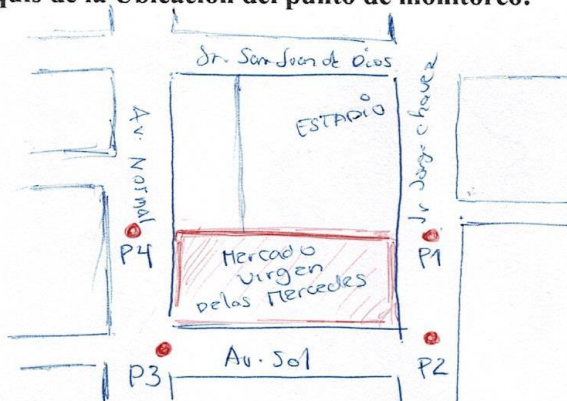 quis de la Ubicación del punto de monitoreo:
Jr. San Juan de Dios
Av. Normal
ESTADIO
Jr Jorge Chavez
P4
Mercado
Virgen
De las Mercedes
P1
Av. Sol
P3
P2